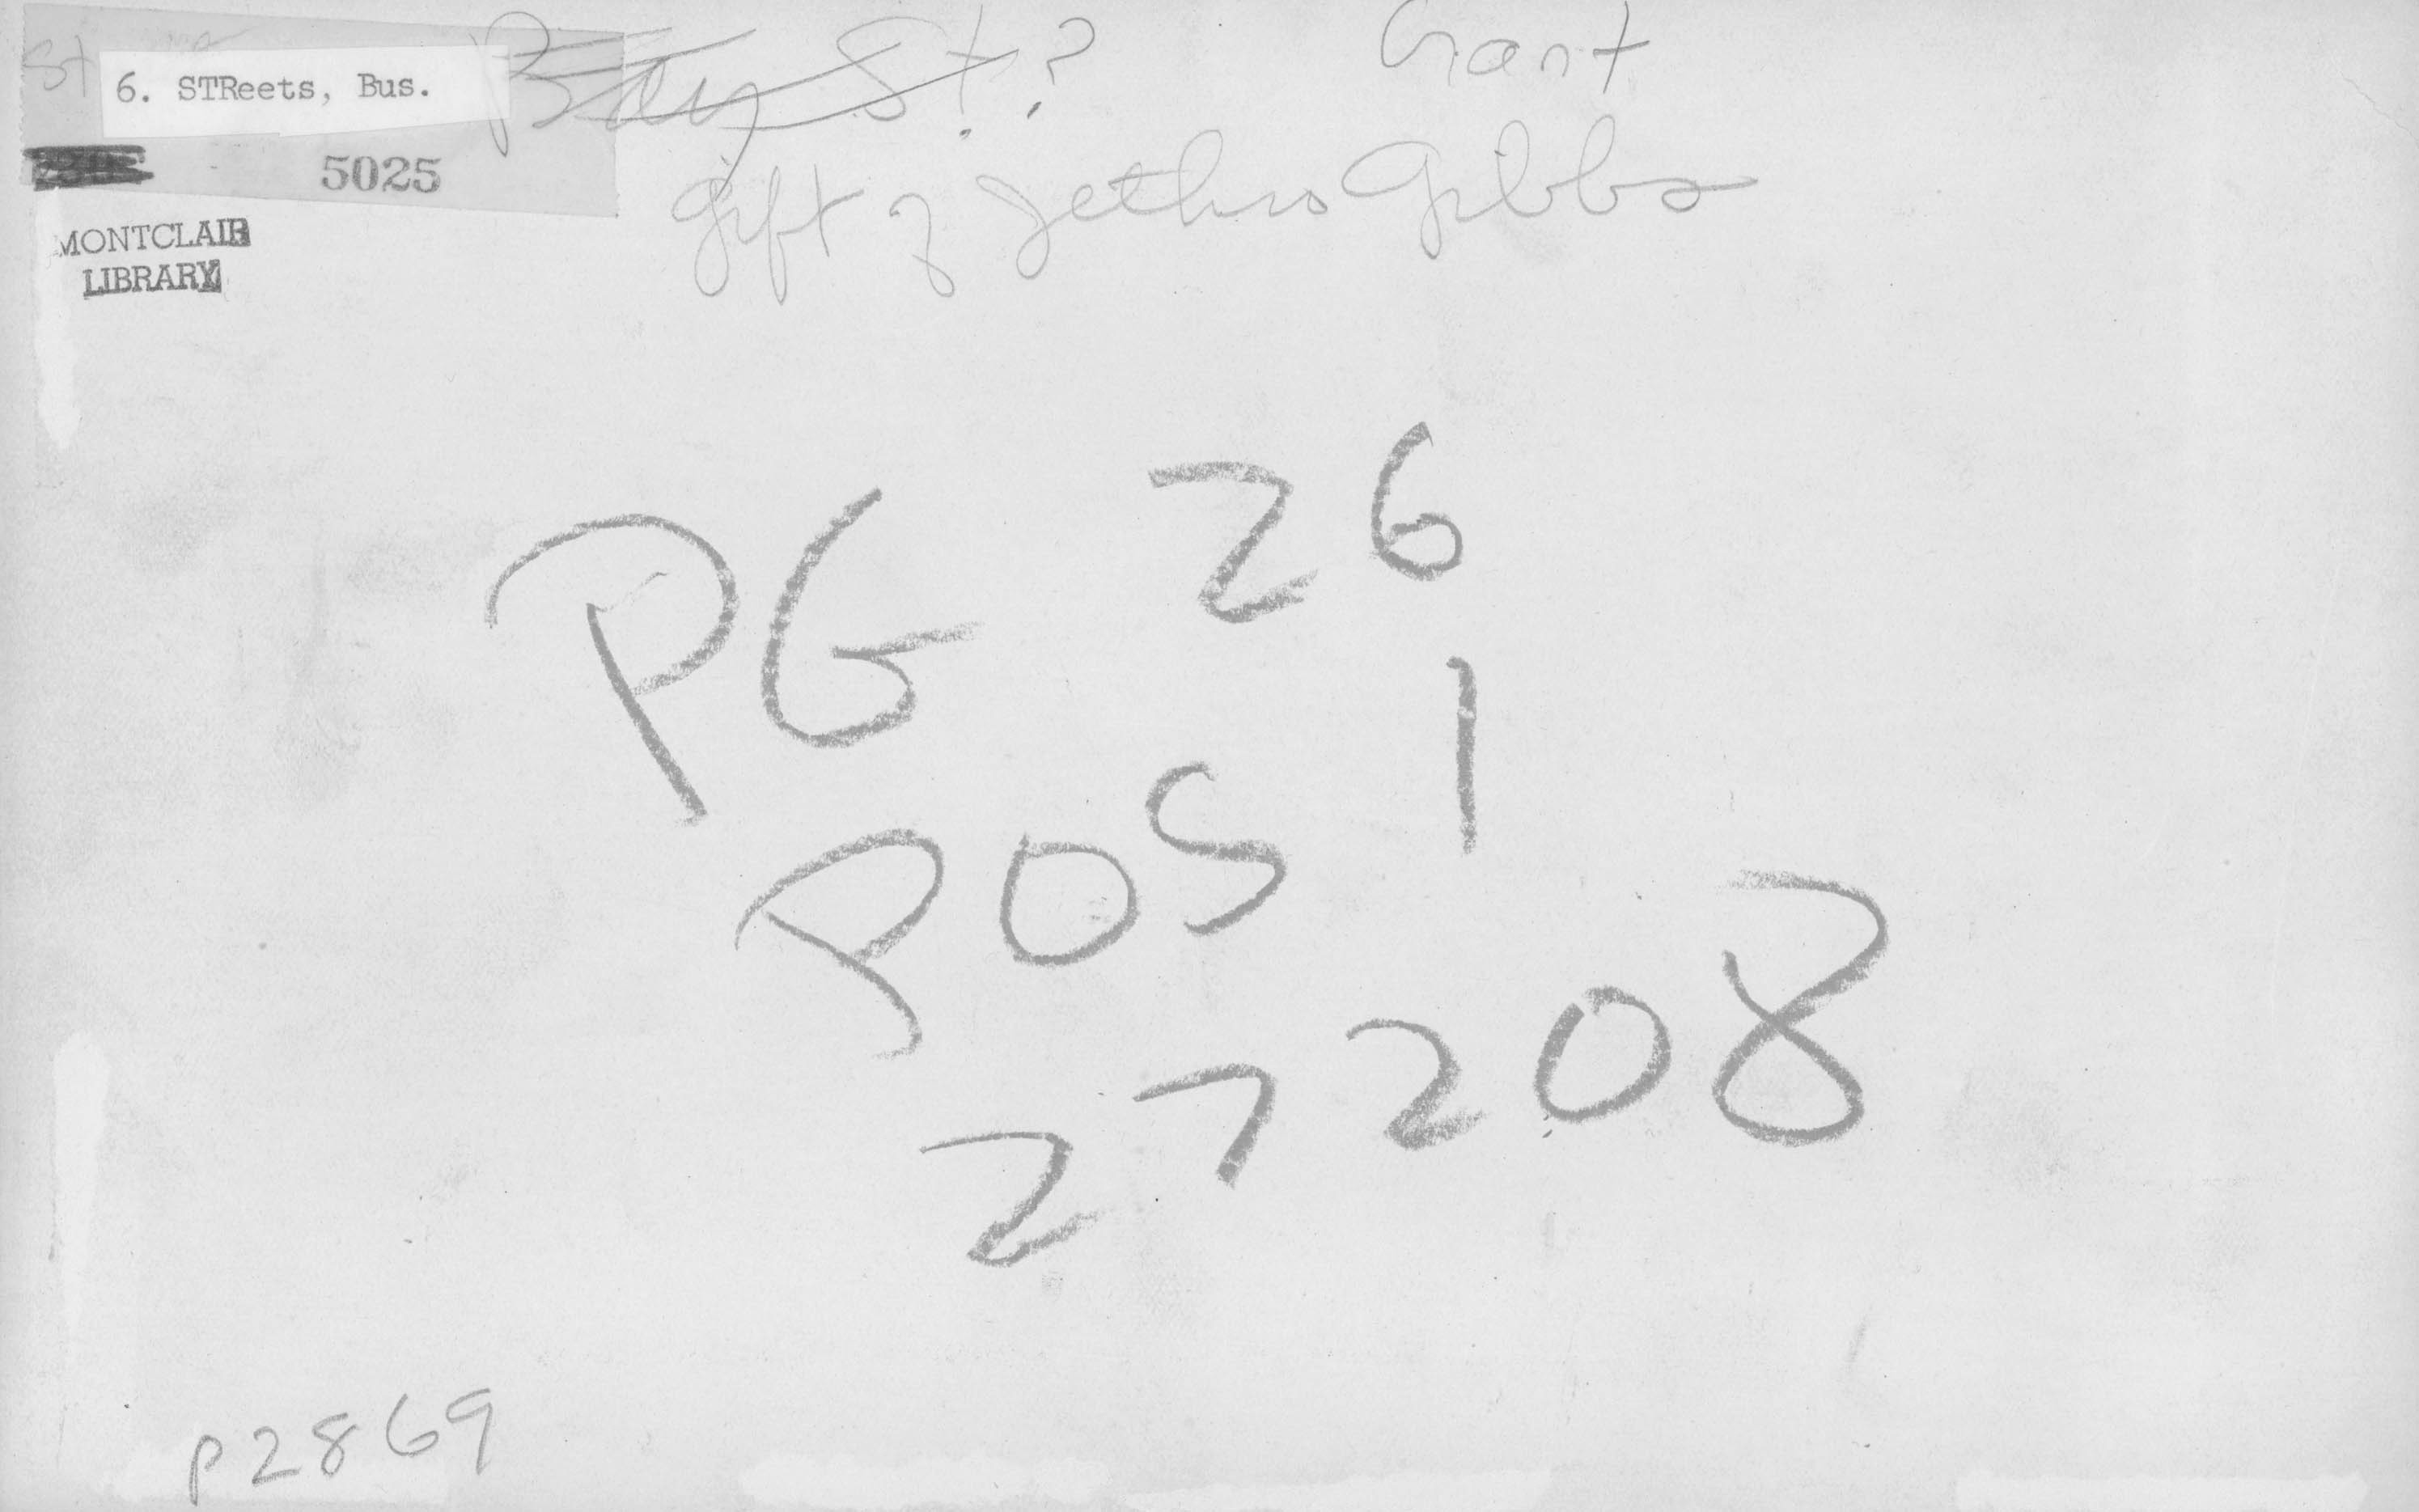 Bay St.? Grant
6. STReets, Bus.
5025
gift of Jethro Gibbs
MONTCLAIR
LIBRARY
PG 26
POS 1
27208
P2869